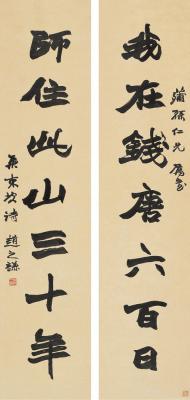 我在錢唐六百日
蒲孫仁兄屬書
師住此山三十年
集東坡詩 趙之謙